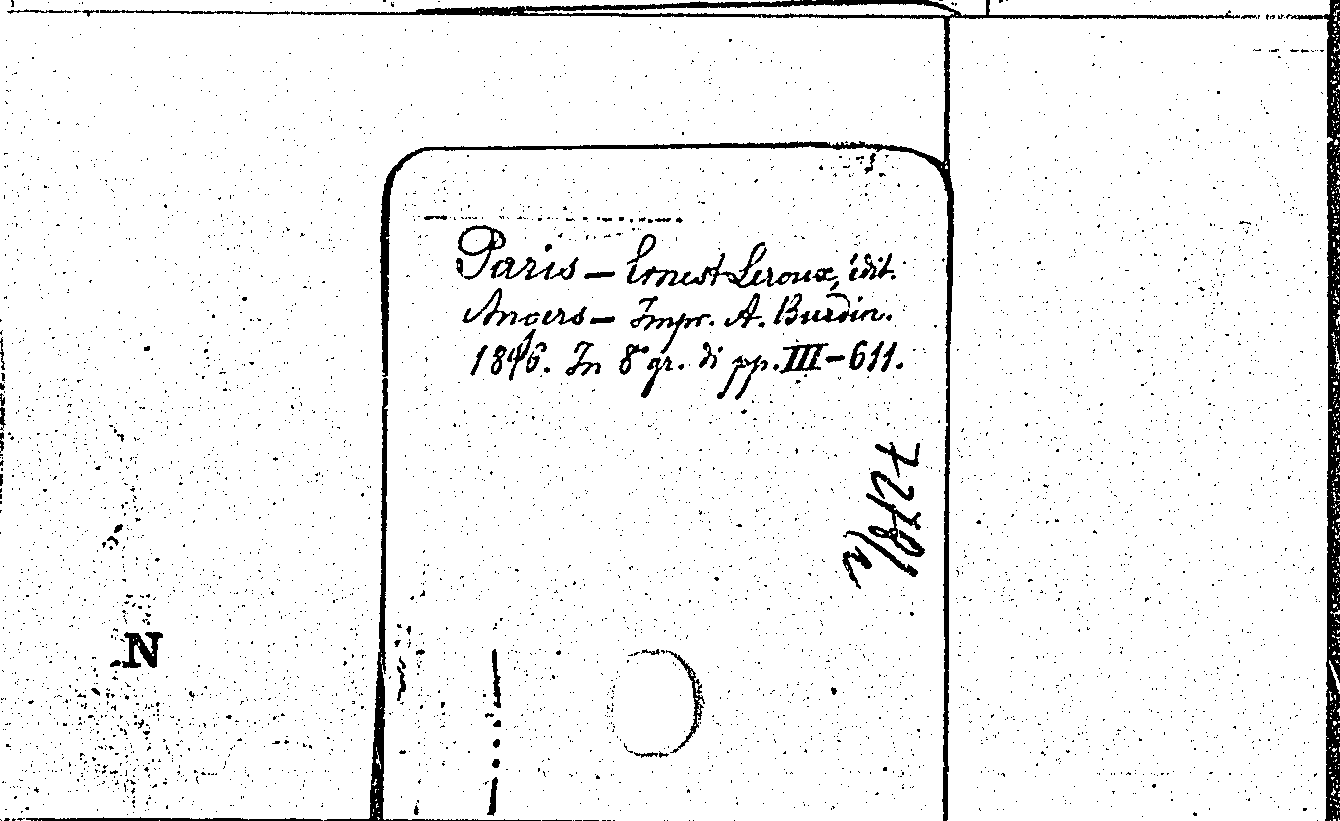 Paris – Ernest Leroux, édit.
Angers – Impr. A. Burdin.
In 8° gr. di pp. III–611.
N